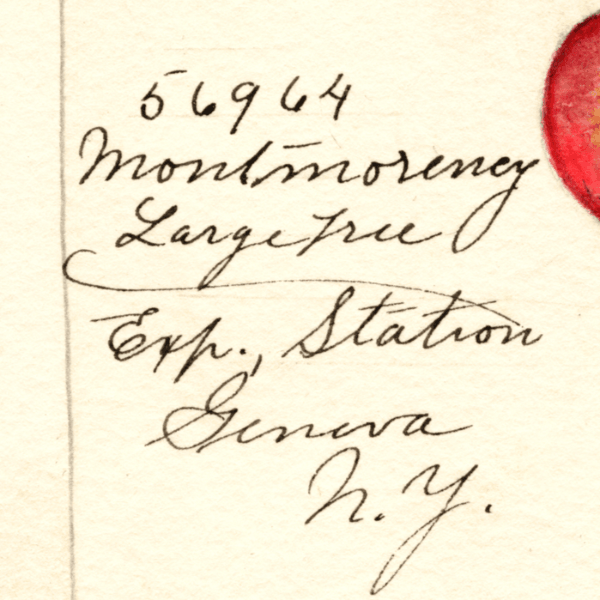 56964
Montmorency
Large Tree
Exp., Station
Geneva
N. Y.